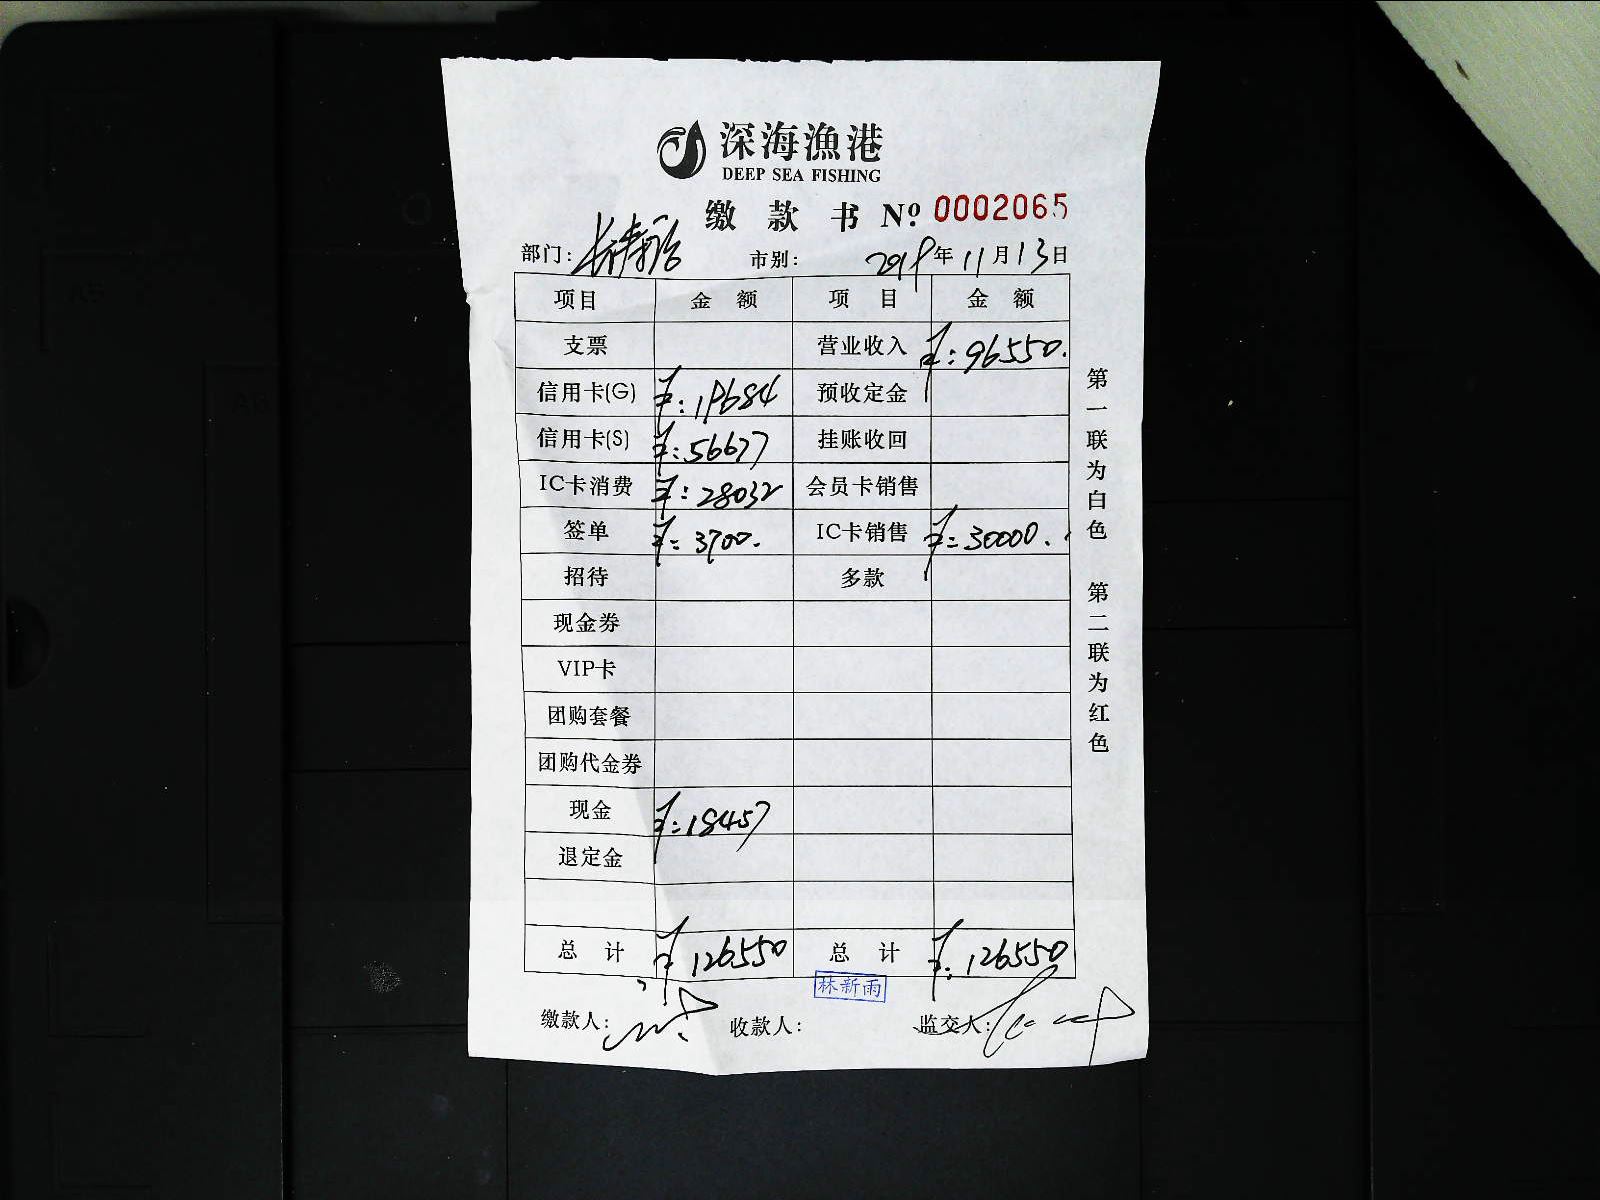 深海渔港
DEEP SEA FISHING
缴 款 书 Nº 0002065
部门: 市别: 2019年11月13日
项目 金 额 项 目 金 额
支票 营业收入 ¥:96550.
信用卡(G) ¥:19684 预收定金
信用卡(S) ¥:56677 挂账收回
IC卡消费 ¥:28032 会员卡销售
签单 ¥:3700. IC卡销售 ¥:30000.
招待 多款
现金券
VIP卡
团购套餐
团购代金券
现金 ¥:18457
退定金
总 计 ¥126550 总 计 ¥:126550
林新雨
缴款人: 收款人: 监交人:
第一联为白色 第二联为红色